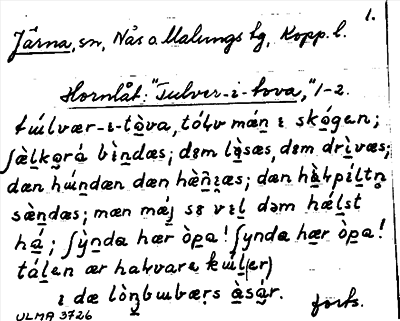 1.
Järna, sn, Nås o Malungs hg, Kopp. l.
Hornlåt: "Tulver-i-tova," 1-2.
túlvær-ı-tòva, tólv mán ı skógen;
ʃæ̀lkorá bìndæs; dəm lòsæs, dəm drìvæs;
dæn húndæn dæn hæ̀ŋıæs; dæn
sæ̀ndæs; mæn mǽj sə vıl dəm hǽlst
há; ʃỳnda hær òpa! ʃynda hær òpa!
tálen ær halvare kúl(er)
ı dæ àsár.
forts.
ULMA 3726